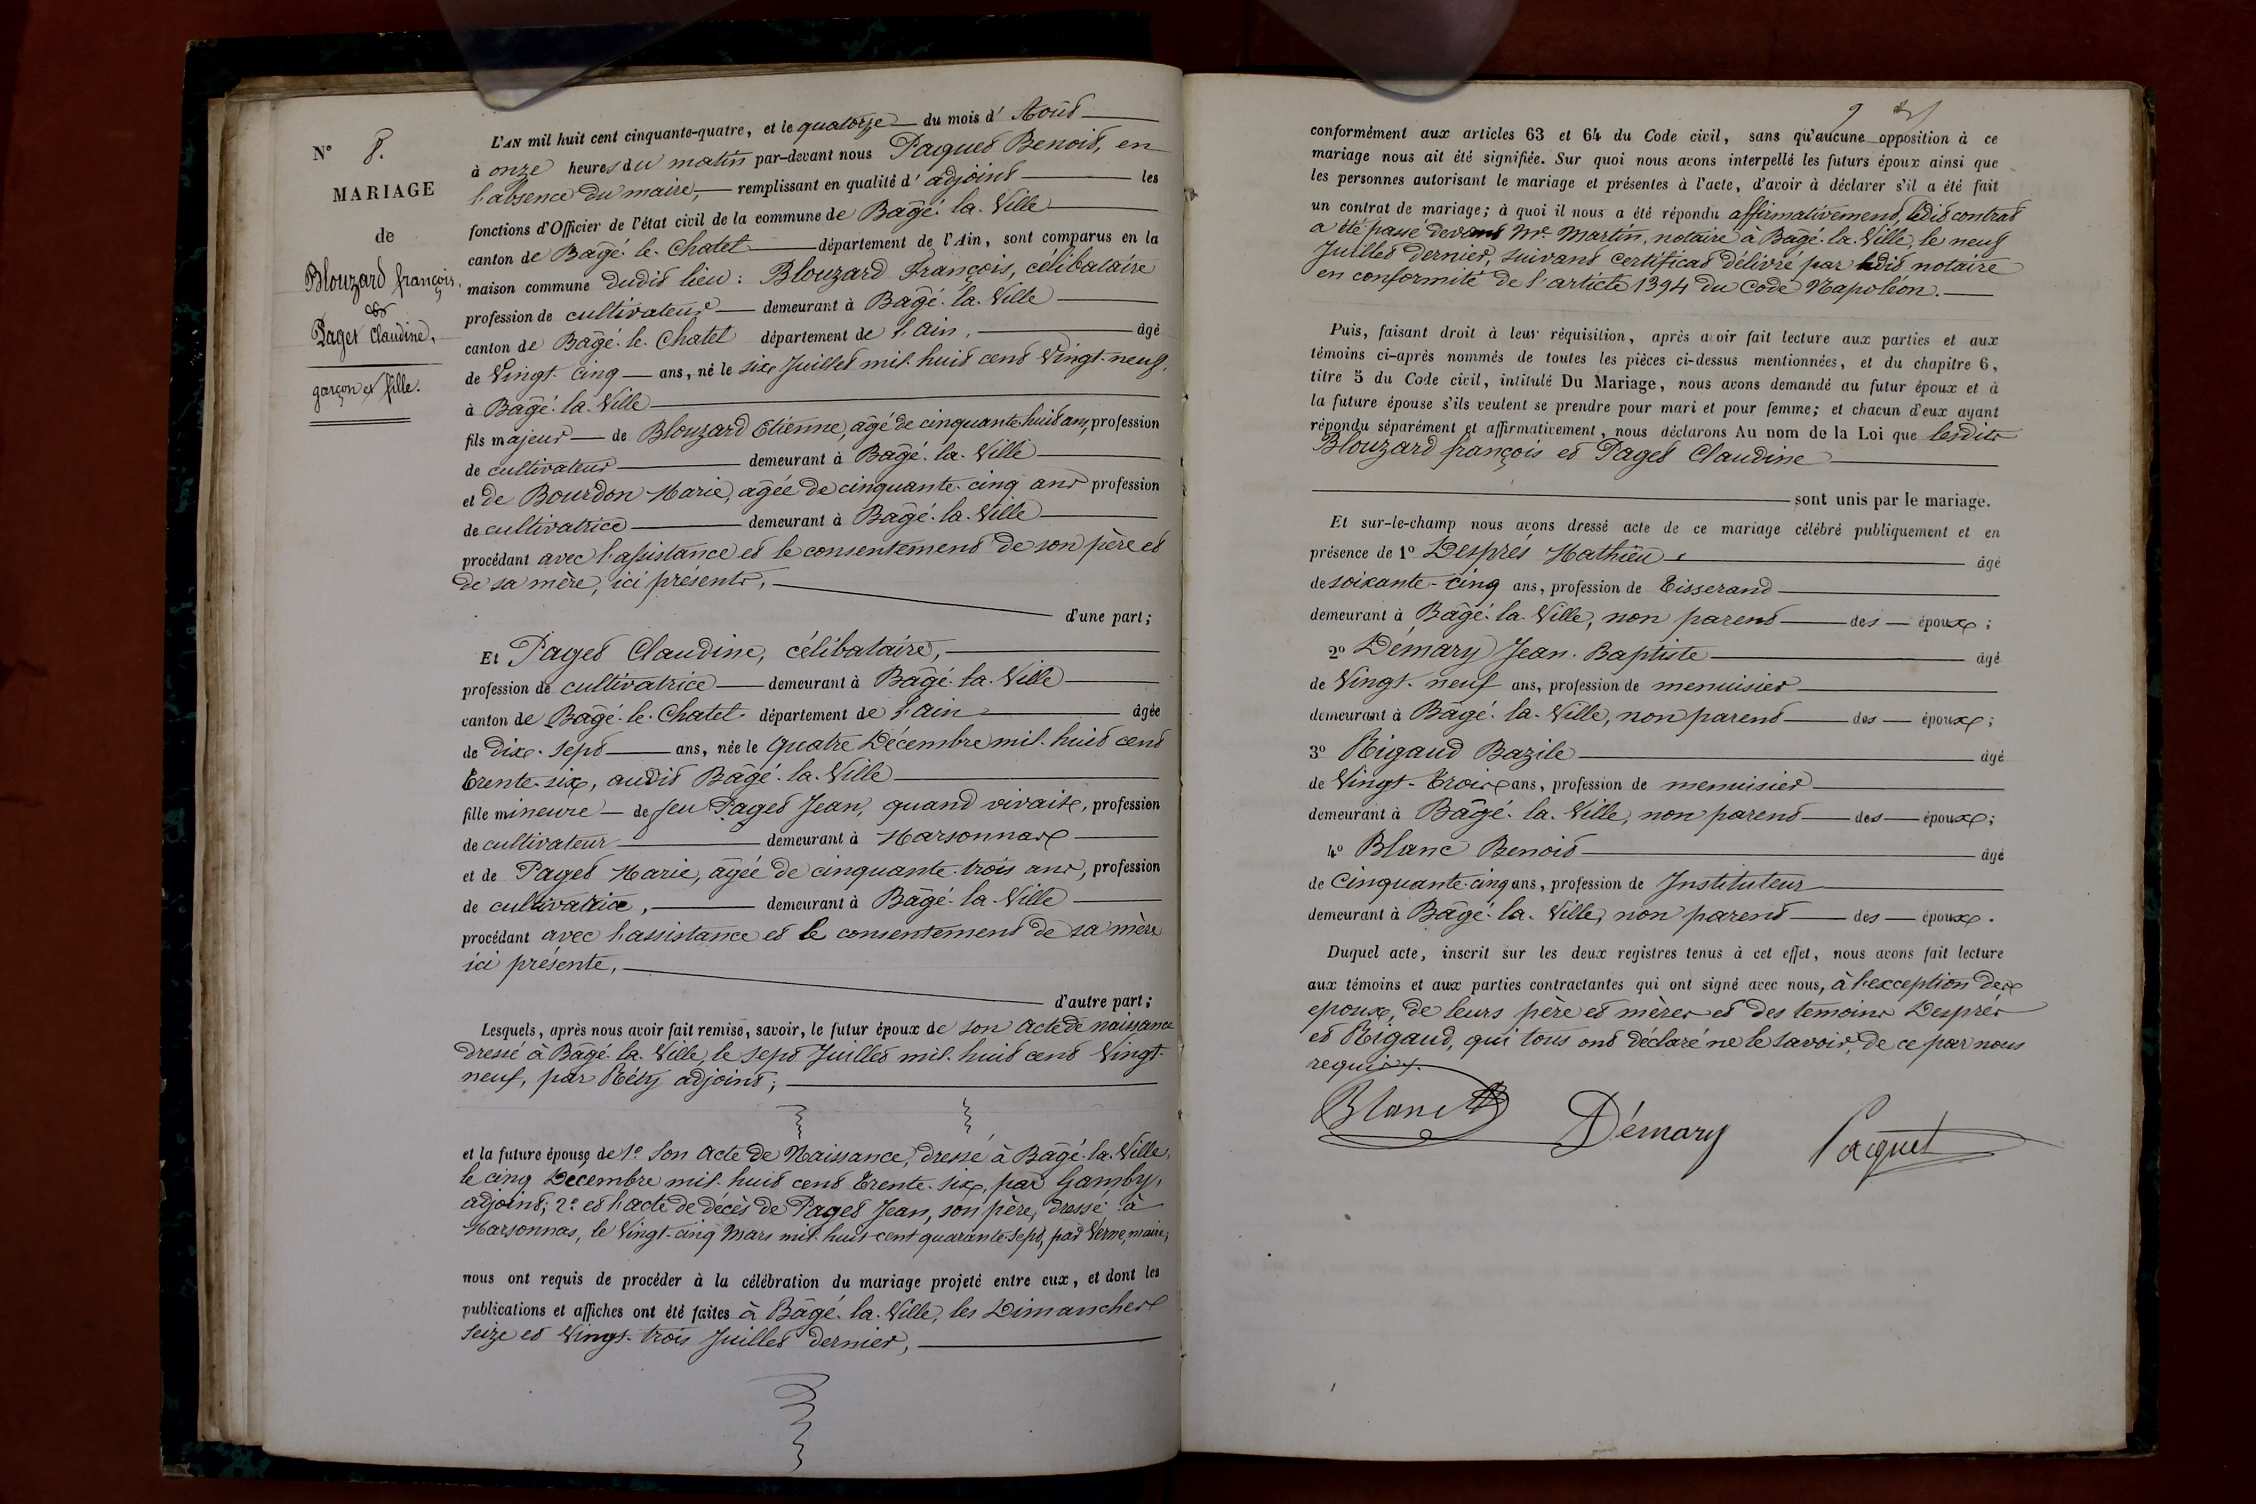 N° 8.
MARIAGE
de
Blouzard françois,
et
Paget Claudine,
garçon et fille.
L'AN mil huit cent cinquante-quatre, et le quatorze du mois d'Août
à onze heures du matin par-devant nous Paquet Benoit, en
l'absence du maire, remplissant en qualité d'adjoint les
fonctions d'Officier de l'état civil de la commune de Bâgé-la-Ville
canton de Bâgé-le-Chatel département de l'Ain, sont comparus en la
maison commune dudit lieu: Blouzard François, célibataire
profession de cultivateur demeurant à Bâgé-la-Ville
canton de Bâgé-le-Chatel département de l'ain, âgé
de Vingt-cinq ans, né le six Juillet mil-huit cent Vingt-neuf,
à Bâgé-la-Ville
fils majeur de Blouzard Etienne, âgé de cinquante-huit ans, profession
de cultivateur demeurant à Bâgé-la-Ville
et de Bourdon Marie, âgée de cinquante-cinq ans profession
de cultivatrice demeurant à Bâgé-la-Ville
procédant avec l'assistance et le consentement de son père et
de sa mère, ici présents,
d'une part;
Et Paget Claudine, célibataire,
profession de cultivatrice demeurant à Bâgé-la-Ville
canton de Bâgé-le-Chatel département de l'ain âgée
de dix-sept ans, née le quatre Décembre mil-huit cent
trente-six, audit Bâgé-la-Ville
fille mineure de feu Paget Jean, quand vivait, profession
de cultivateur demeurant à Marsonnas
et de Paget Marie, âgée de cinquante-trois ans, profession
de cultivatrice, demeurant à Bâgé-la-Ville
procédant avec l'assistance et le consentement de sa mère
ici présente,
d'autre part;
Lesquels, après nous avoir fait remise, savoir, le futur époux de son acte de naissance
dressé à Bâgé-la-Ville, le sept Juillet mil-huit cent Vingt-
neuf, par Réty adjoint;
et la future épouse de 1° Son acte de Naissance, dressé à Bâgé-la-Ville,
le cinq Décembre mil-huit cent trente-six, par Gamby,
adjoint; 2° et l'acte de décès de Paget Jean, son père, dressé à
Marsonnas, le Vingt-cinq Mars mil-huit-cent quarante-sept, par Verne, maire;
nous ont requis de procéder à la célébration du mariage projeté entre eux, et dont les
publications et affiches ont été faites à Bâgé-la-Ville, les Dimanches
Seize et Vingt-trois Juillet dernier,
conformément aux articles 63 et 64 du Code civil, sans qu'aucune opposition à ce
mariage nous ait été signifiée. Sur quoi nous avons interpellé les futurs époux ainsi que
les personnes autorisant le mariage et présentes à l'acte, d'avoir à déclarer s'il a été fait
un contrat de mariage; à quoi il nous a été répondu affirmativement, ledit contrat
a été passé devant Me Martin, notaire à Bâgé-la-Ville, le neuf
Juillet dernier, suivant certificat délivré par ledit notaire
en conformité de l'article 1394 du Code Napoléon.
Puis, faisant droit à leur réquisition, après avoir fait lecture aux parties et aux
témoins ci-après nommés de toutes les pièces ci-dessus mentionnées, et du chapitre 6,
titre 5 du Code civil, intitulé Du Mariage, nous avons demandé au futur époux et à
la future épouse s'ils veulent se prendre pour mari et pour femme; et chacun d'eux ayant
répondu séparément et affirmativement, nous déclarons Au nom de la Loi que lesdits
Blouzard françois et Paget Claudine
sont unis par le mariage.
Et sur-le-champ nous avons dressé acte de ce mariage célébré publiquement et en
présence de 1° Després Mathieu, âgé
de soixante-cinq ans, profession de tisserand
demeurant à Bâgé-la-Ville, non parent des époux;
2° Démary Jean-Baptiste âgé
de Vingt-neuf ans, profession de menuisier
demeurant à Bâgé-la-Ville, non parent des époux;
3° Rigaud Bazile âgé
de Vingt-trois ans, profession de menuisier
demeurant à Bâgé-la-Ville, non parent des époux;
4° Blanc Benoit âgé
de Cinquante-cinq ans, profession de Instituteur
demeurant à Bâgé-la-Ville, non parent des époux.
Duquel acte, inscrit sur les deux registres tenus à cet effet, nous avons fait lecture
aux témoins et aux parties contractantes qui ont signé avec nous, à l'exception des
époux, de leurs père et mères et des témoins Després
et Rigaud, qui tous ont déclaré ne le savoir, de ce par nous
requis.
Blanc Démary Pacquet